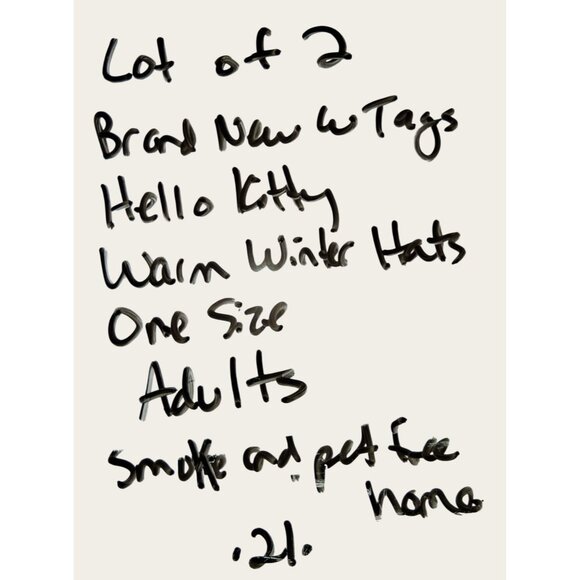 Lot of 2
Brand New w Tags
Hello Kitty
Warm Winter Hats
One Size
Adults
Smoke and pet free
home
.21.